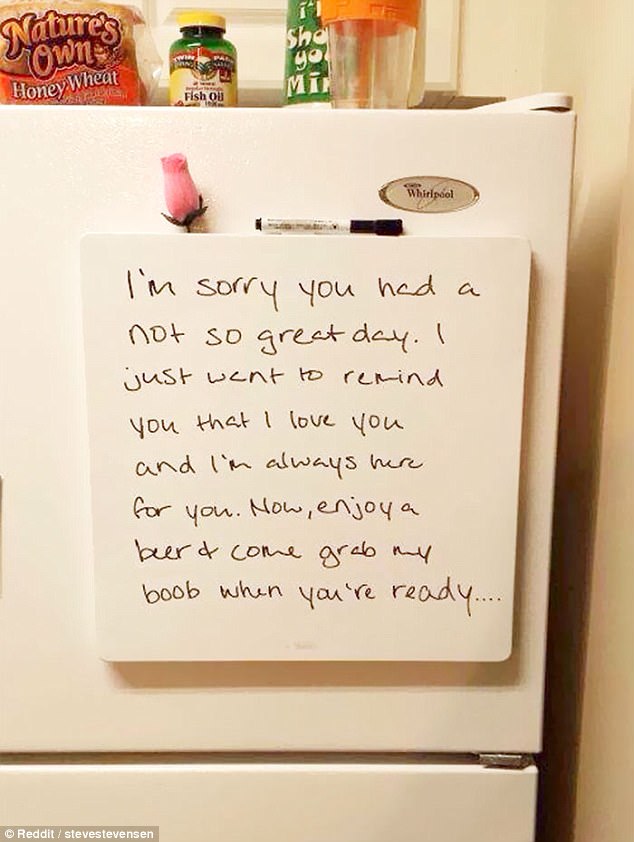 Nature's
Own
Honey Wheat
Fish Oil
Sho
yo
Mi
Whirlpool
I'm sorry you had a
not so great day. I
just want to remind
you that I love you
and I'm always here
for you. Now, enjoy a
beer & come grab my
boob when you're ready....
© Reddit / stevestevensen